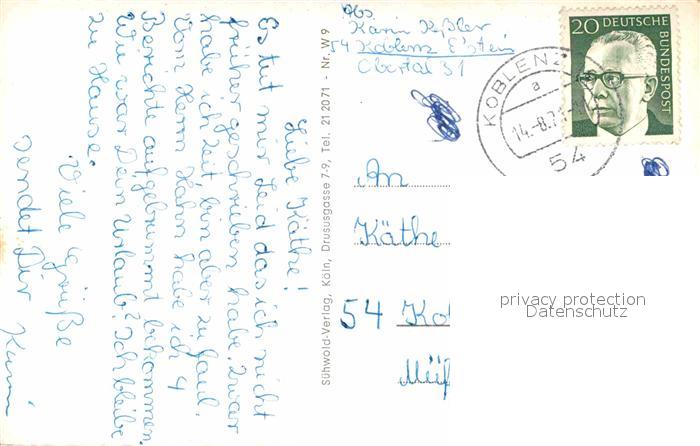 Liebe Käthe!
Es tut mir Leid das ich nicht
früher geschrieben habe. Zwar
habe ich Zeit, bin aber zu faul.
Vom Herrn Hahn habe ich 4
Berichte aufgebrummt bekommen.
Wie war Dein Urlaub? Ich bleibe
zu Hause.
Viele Grüße
sendet Dir Karin
Sühwold-Verlag, Köln, Drususgasse 7-9, Tel. 21 20 71 - Nr. W 9
Abs.
Karin Keßler
54 Koblenz
Obertal 31
KOBLENZ
a
14.-8.7
54
20 DEUTSCHE
BUNDESPOST
An
Käthe
54 Ko
privacy protection
Datenschutz